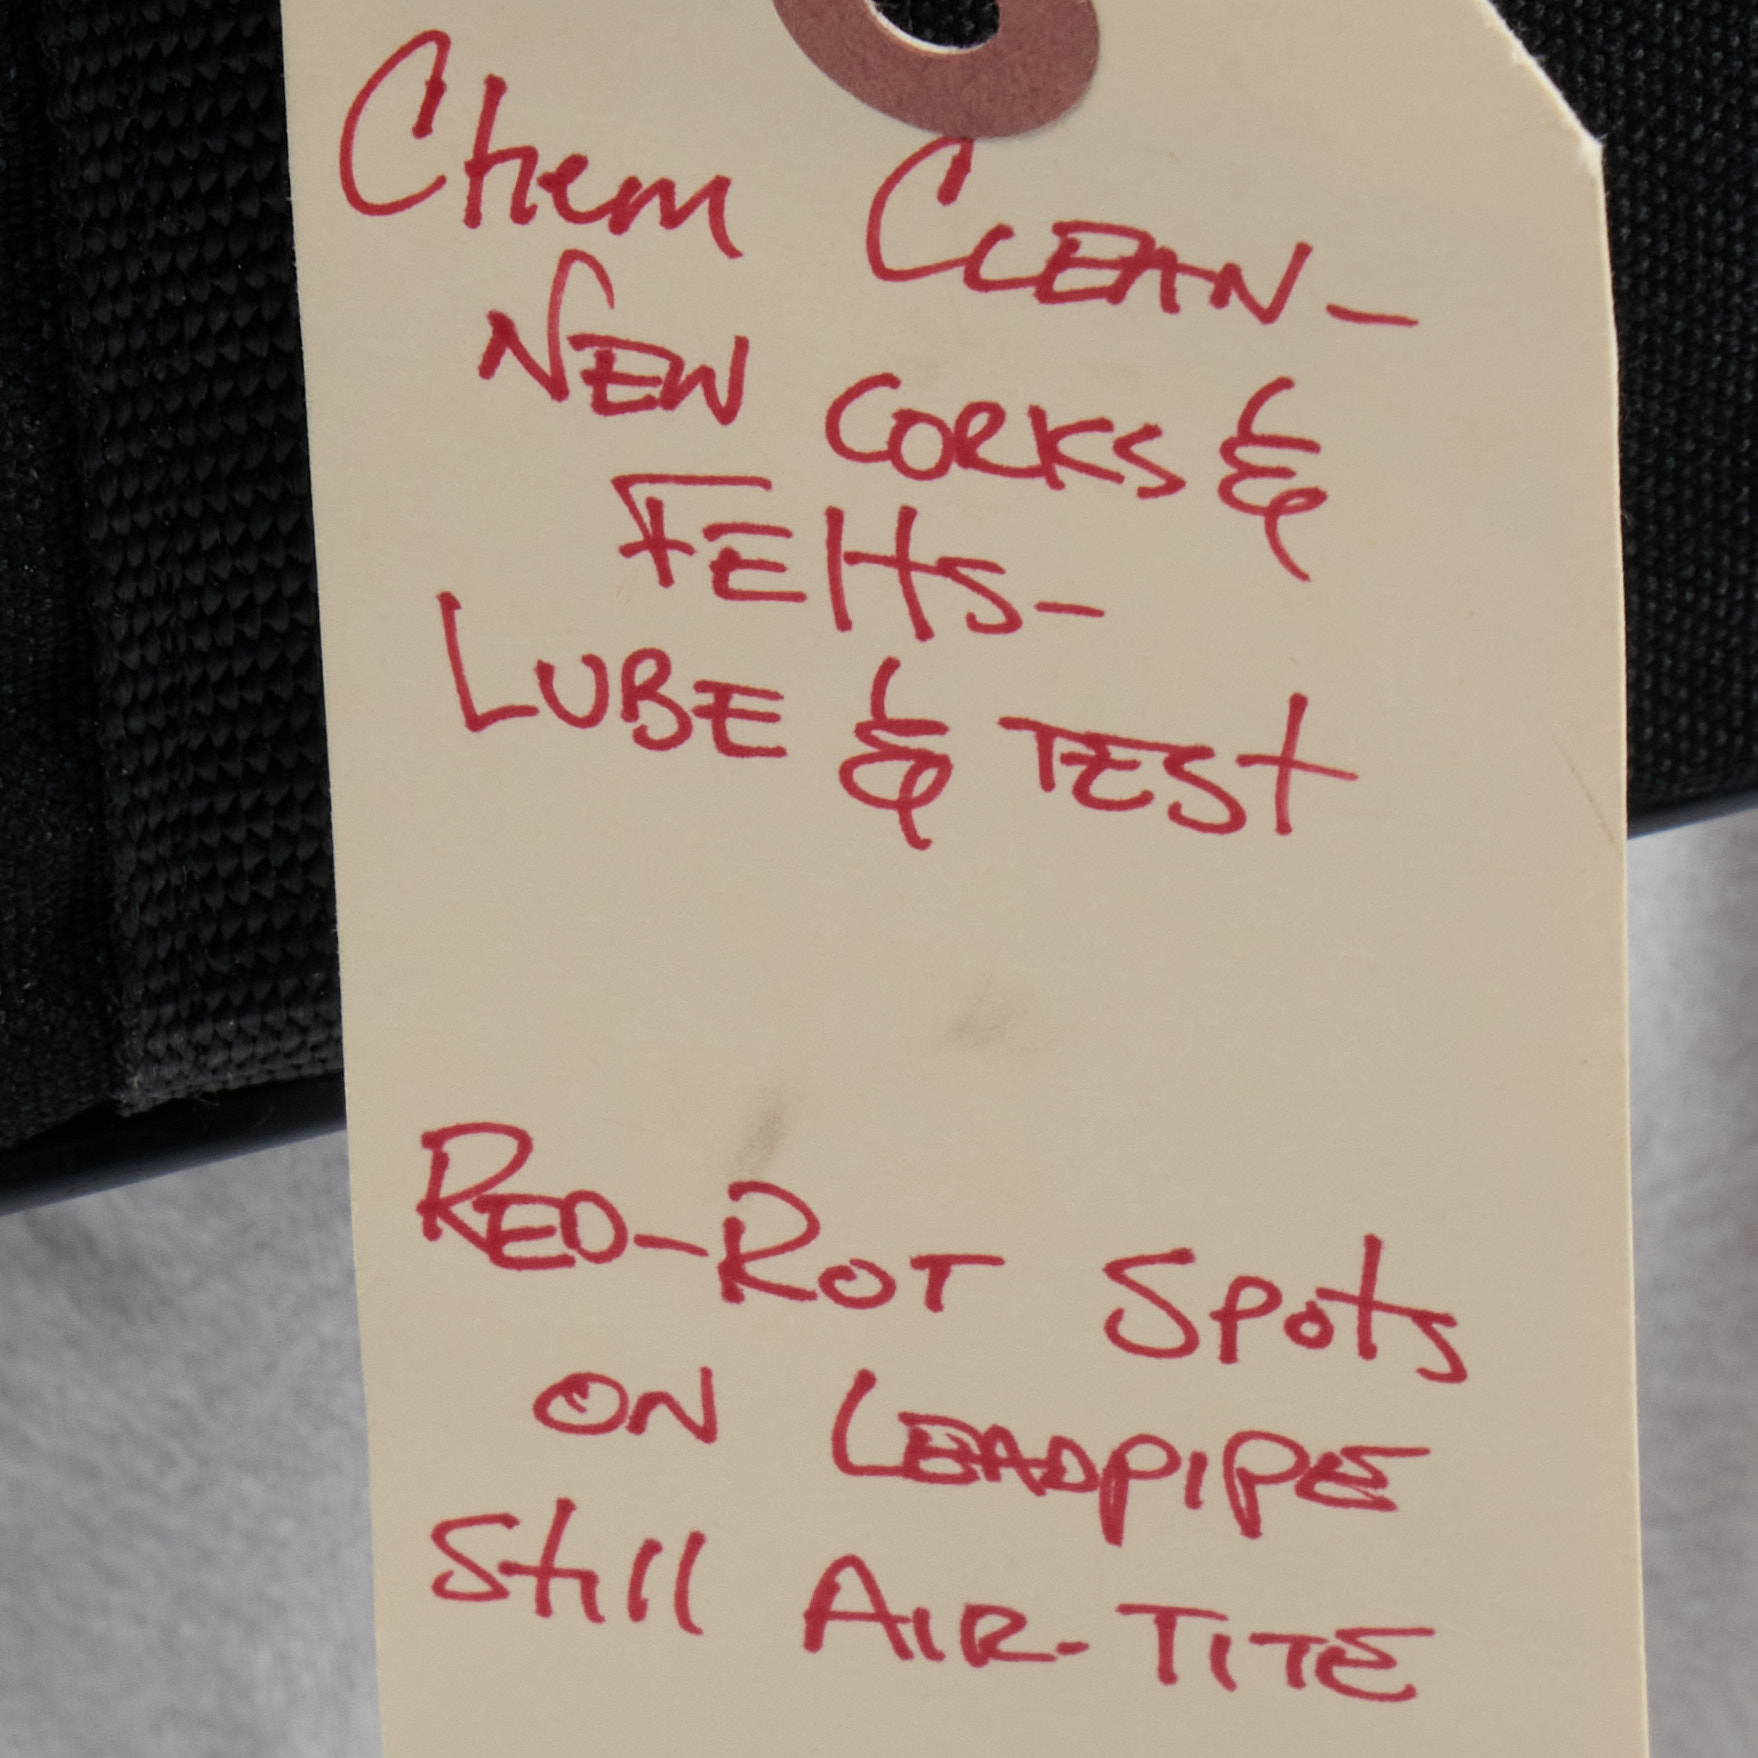 Chem Clean-
New Corks &
Felts-
Lube & Test
Red-Rot Spots
on Leadpipe
Still Air-Tite